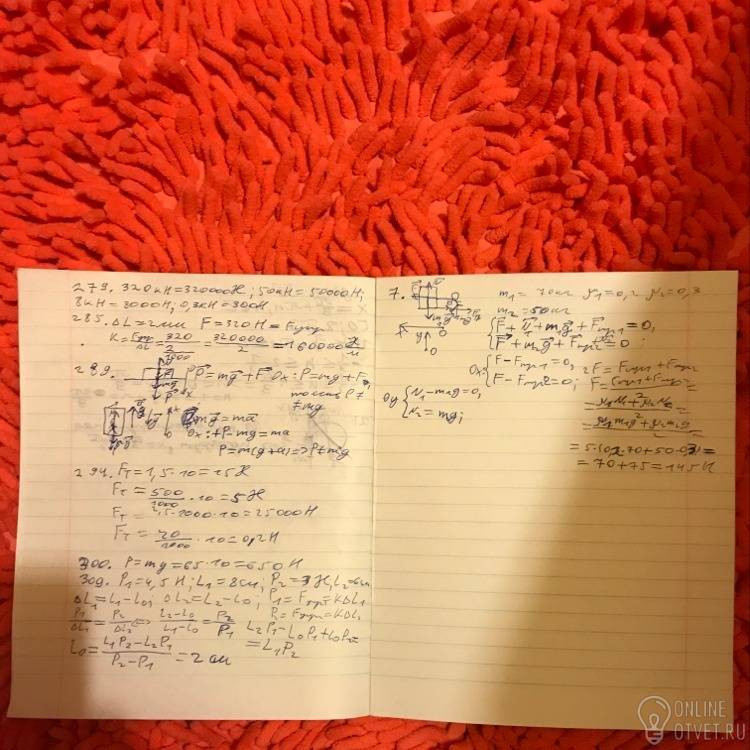 279. 320кН=320000Н; 50кН=50000Н;
8кН=8000Н; 0,3кН=300Н
285. ΔL=2мм F=320Н=Fупр
K=Fупр/ΔL=320/2/1000=320000/2=160000 Н/м
289. P=mg+F Ox: P=mg+F,
то есть P≠
≠mg
mg=ma
Ox: P-mg=ma
P=m(g+a)=>P≠mg
294. Fт=1,5·10=15Н
Fт=500/1000·10=5Н
Fт=2,5·1000·10=25000Н
Fт=20/1000·10=0,2Н
300. P=mg=65·10=650Н
309. P1=4,5Н; L1=8см; P2=3Н, L2=6см
ΔL1=L1-L0, ΔL2=L2-L0; P1=Fупр=KΔL1
P2=Fупр=KΔL2
P1/ΔL1=P2/ΔL2 L2-L0/L1-L0=P2/P1 L2P1-L0P1+L0P2=
=L1P2
L0=L1P2-L2P1/P2-P1=2см
7. m1=70кг μ1=0,2 μ2=0,3
m2=50кг
F+N1+m1g+Fтр1=0,
F+m2g+Fтр2=0
Ox: F-Fтр1=0, 2F=Fтр1+Fтр2
F-Fтр2=0; F=Fтр1+Fтр2/2=
Oy N1-m1g=0,
N2=mg;
=μ1N1+μ2N2/2=
=μ1m1g+μ2m2g/2
=5·(0,2·70+50·0,3)=
=70+75=145Н
ONLINE
OTVET.RU